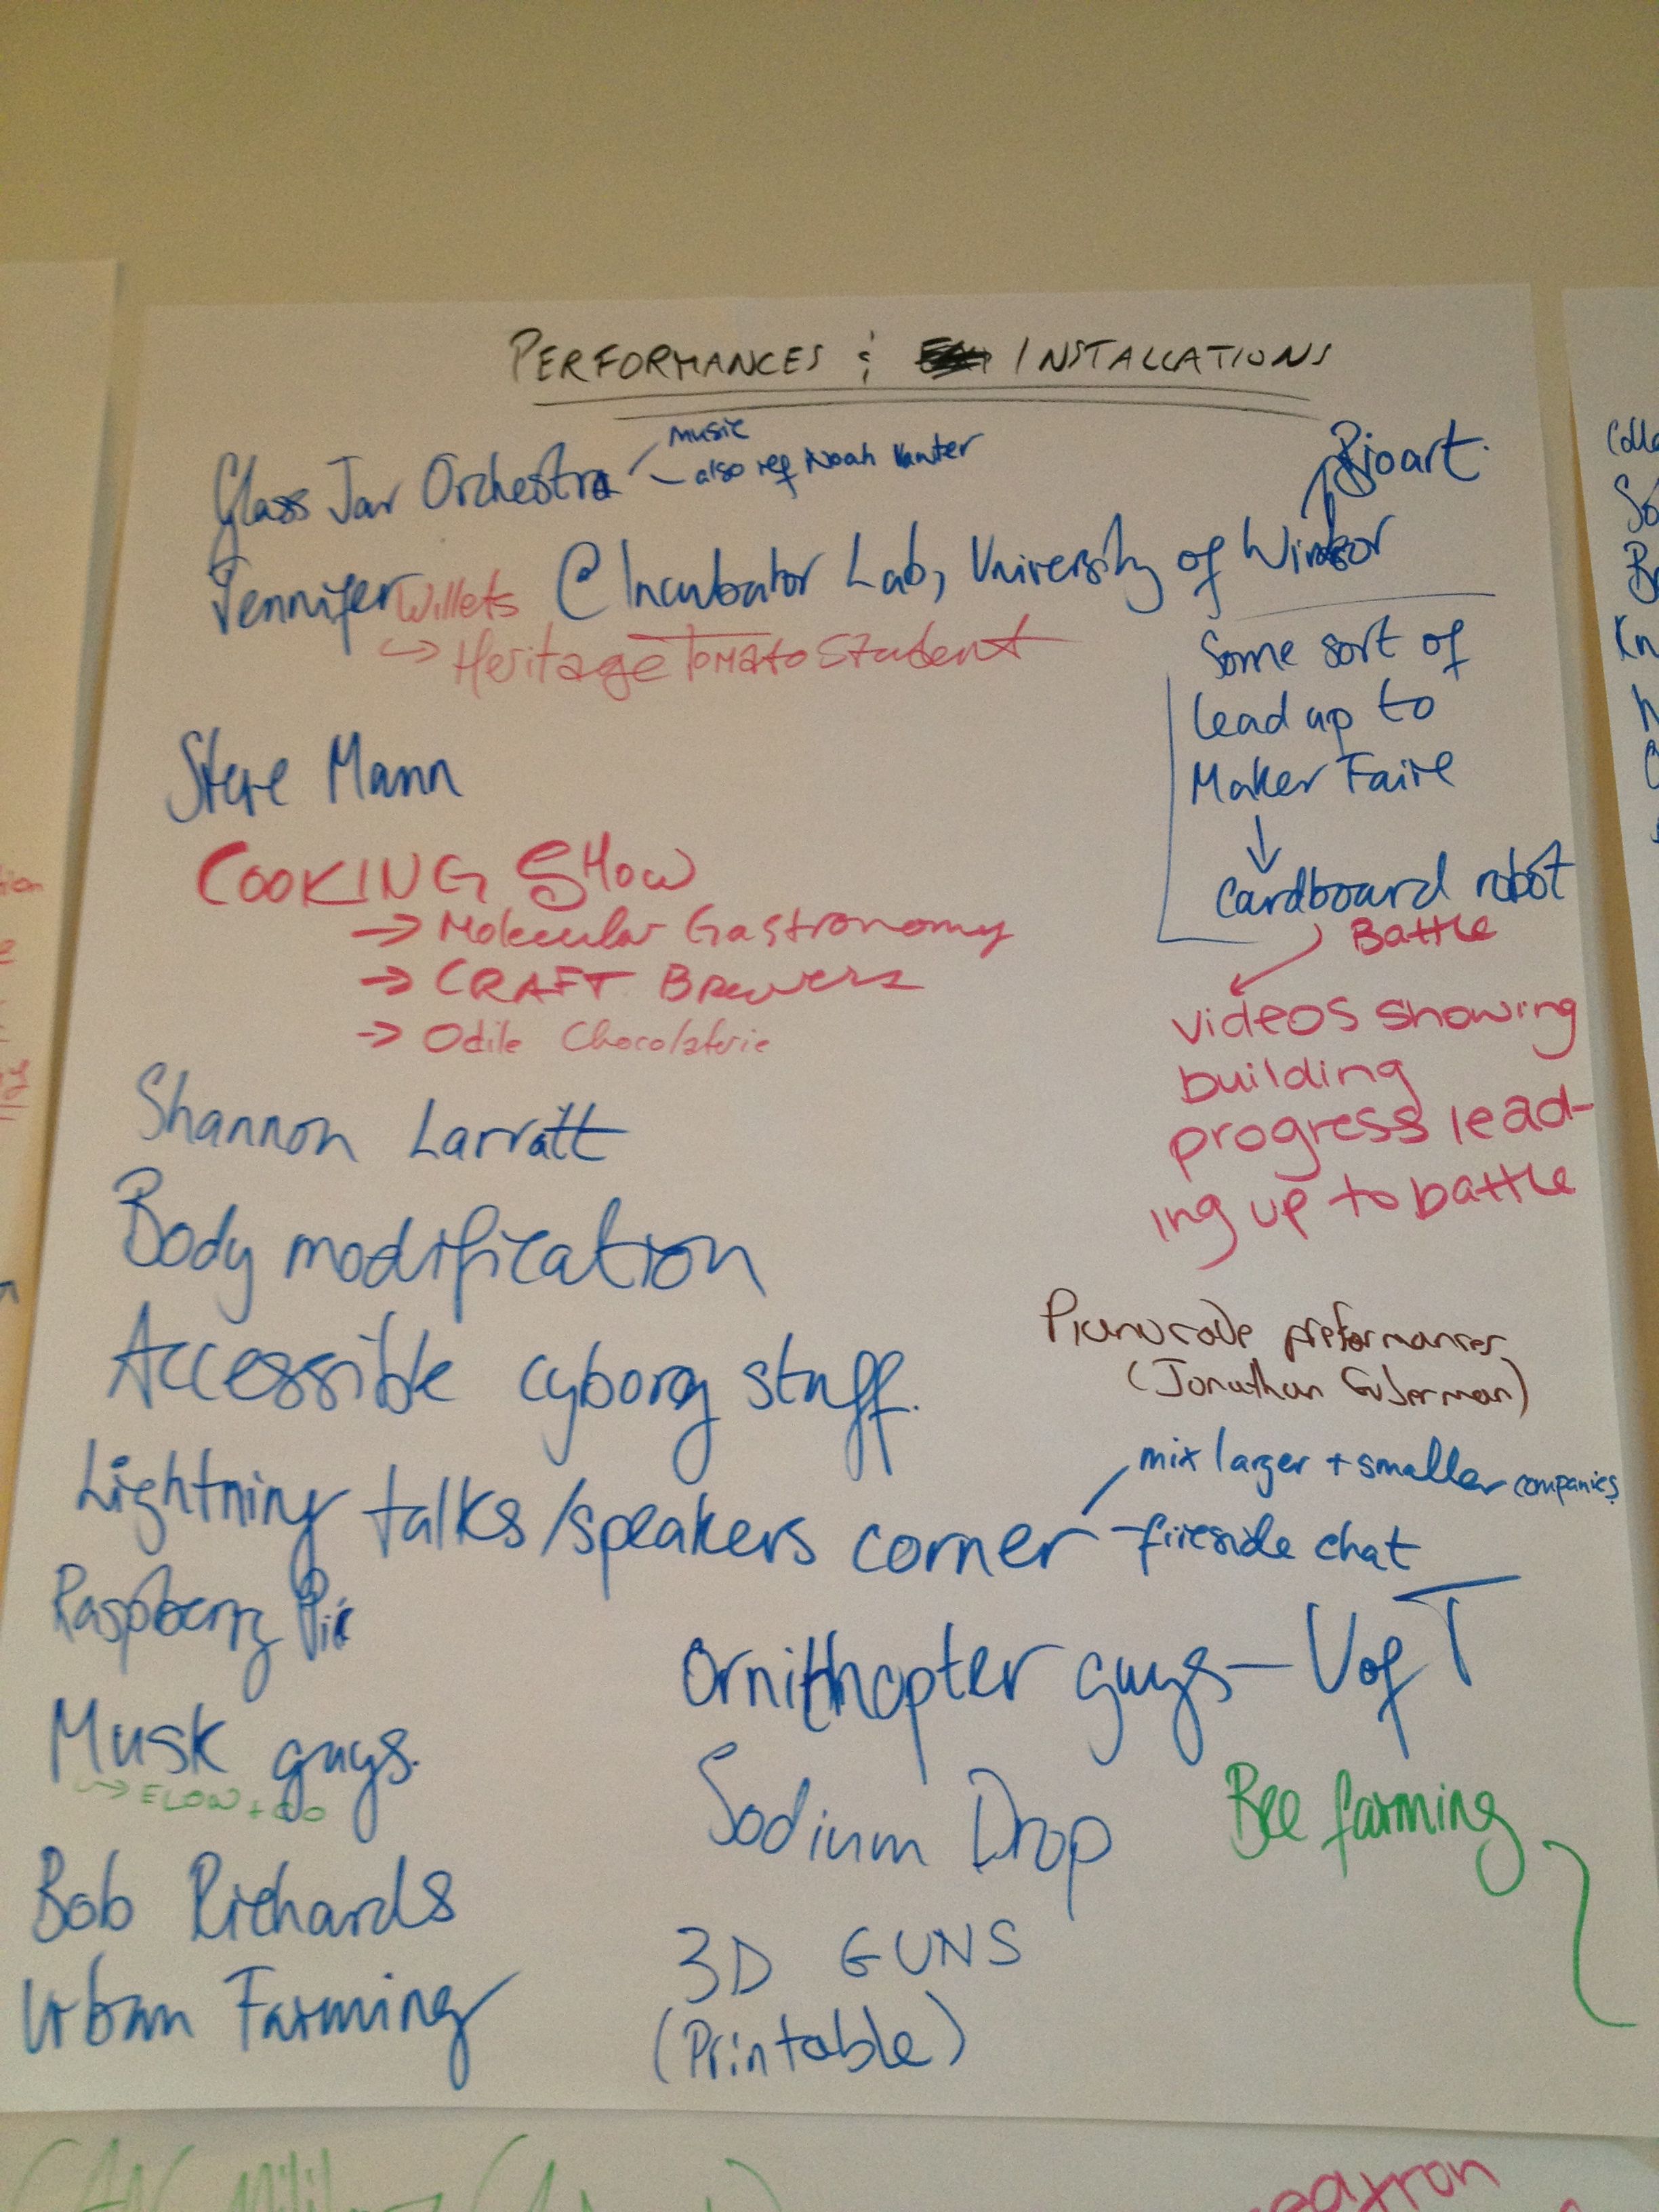 PERFORMANCES & INSTALLATIONS
Glass Jar Orchestra
music
also ref Noah
Bioart.
Jennifer Willets @ Incubator Lab, University of Windsor
Heritage Tomato Student
Some sort of
lead up to
Maker Faire
Cardboard robot
Battle
videos showing
building
progress lead-
ing up to battle
Steve Mann
COOKING SHOW
→ Molecular Gastronomy
→ CRAFT BREWERS
→ Odile Chocolaterie
Shannon Larratt
Body modification
Accessible cyborg stuff.
preformances
(Jonathan Guberman)
Lightning talks/speakers corner
mix larger + smaller companies
- fireside chat
Raspberry Pi
Musk guys.
→ ELON + CO
Bob Richards
Urban Farming
Ornithopter guys - U of T
Sodium Drop
Bee farming
3D GUNS
(Printable)